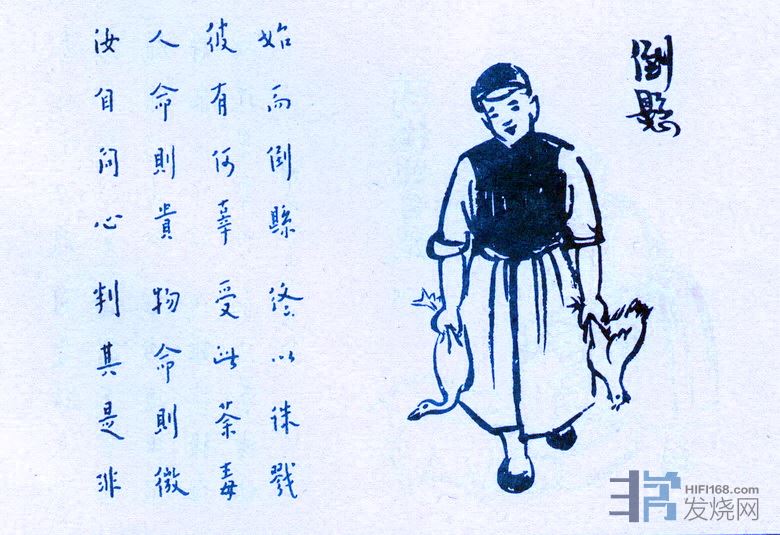 倒懸
始而倒縣 終以誅戮
彼有何辜 受此荼毒
人命則貴 物命則微
汝自問心 判其是非
HIFI168.com
发烧网